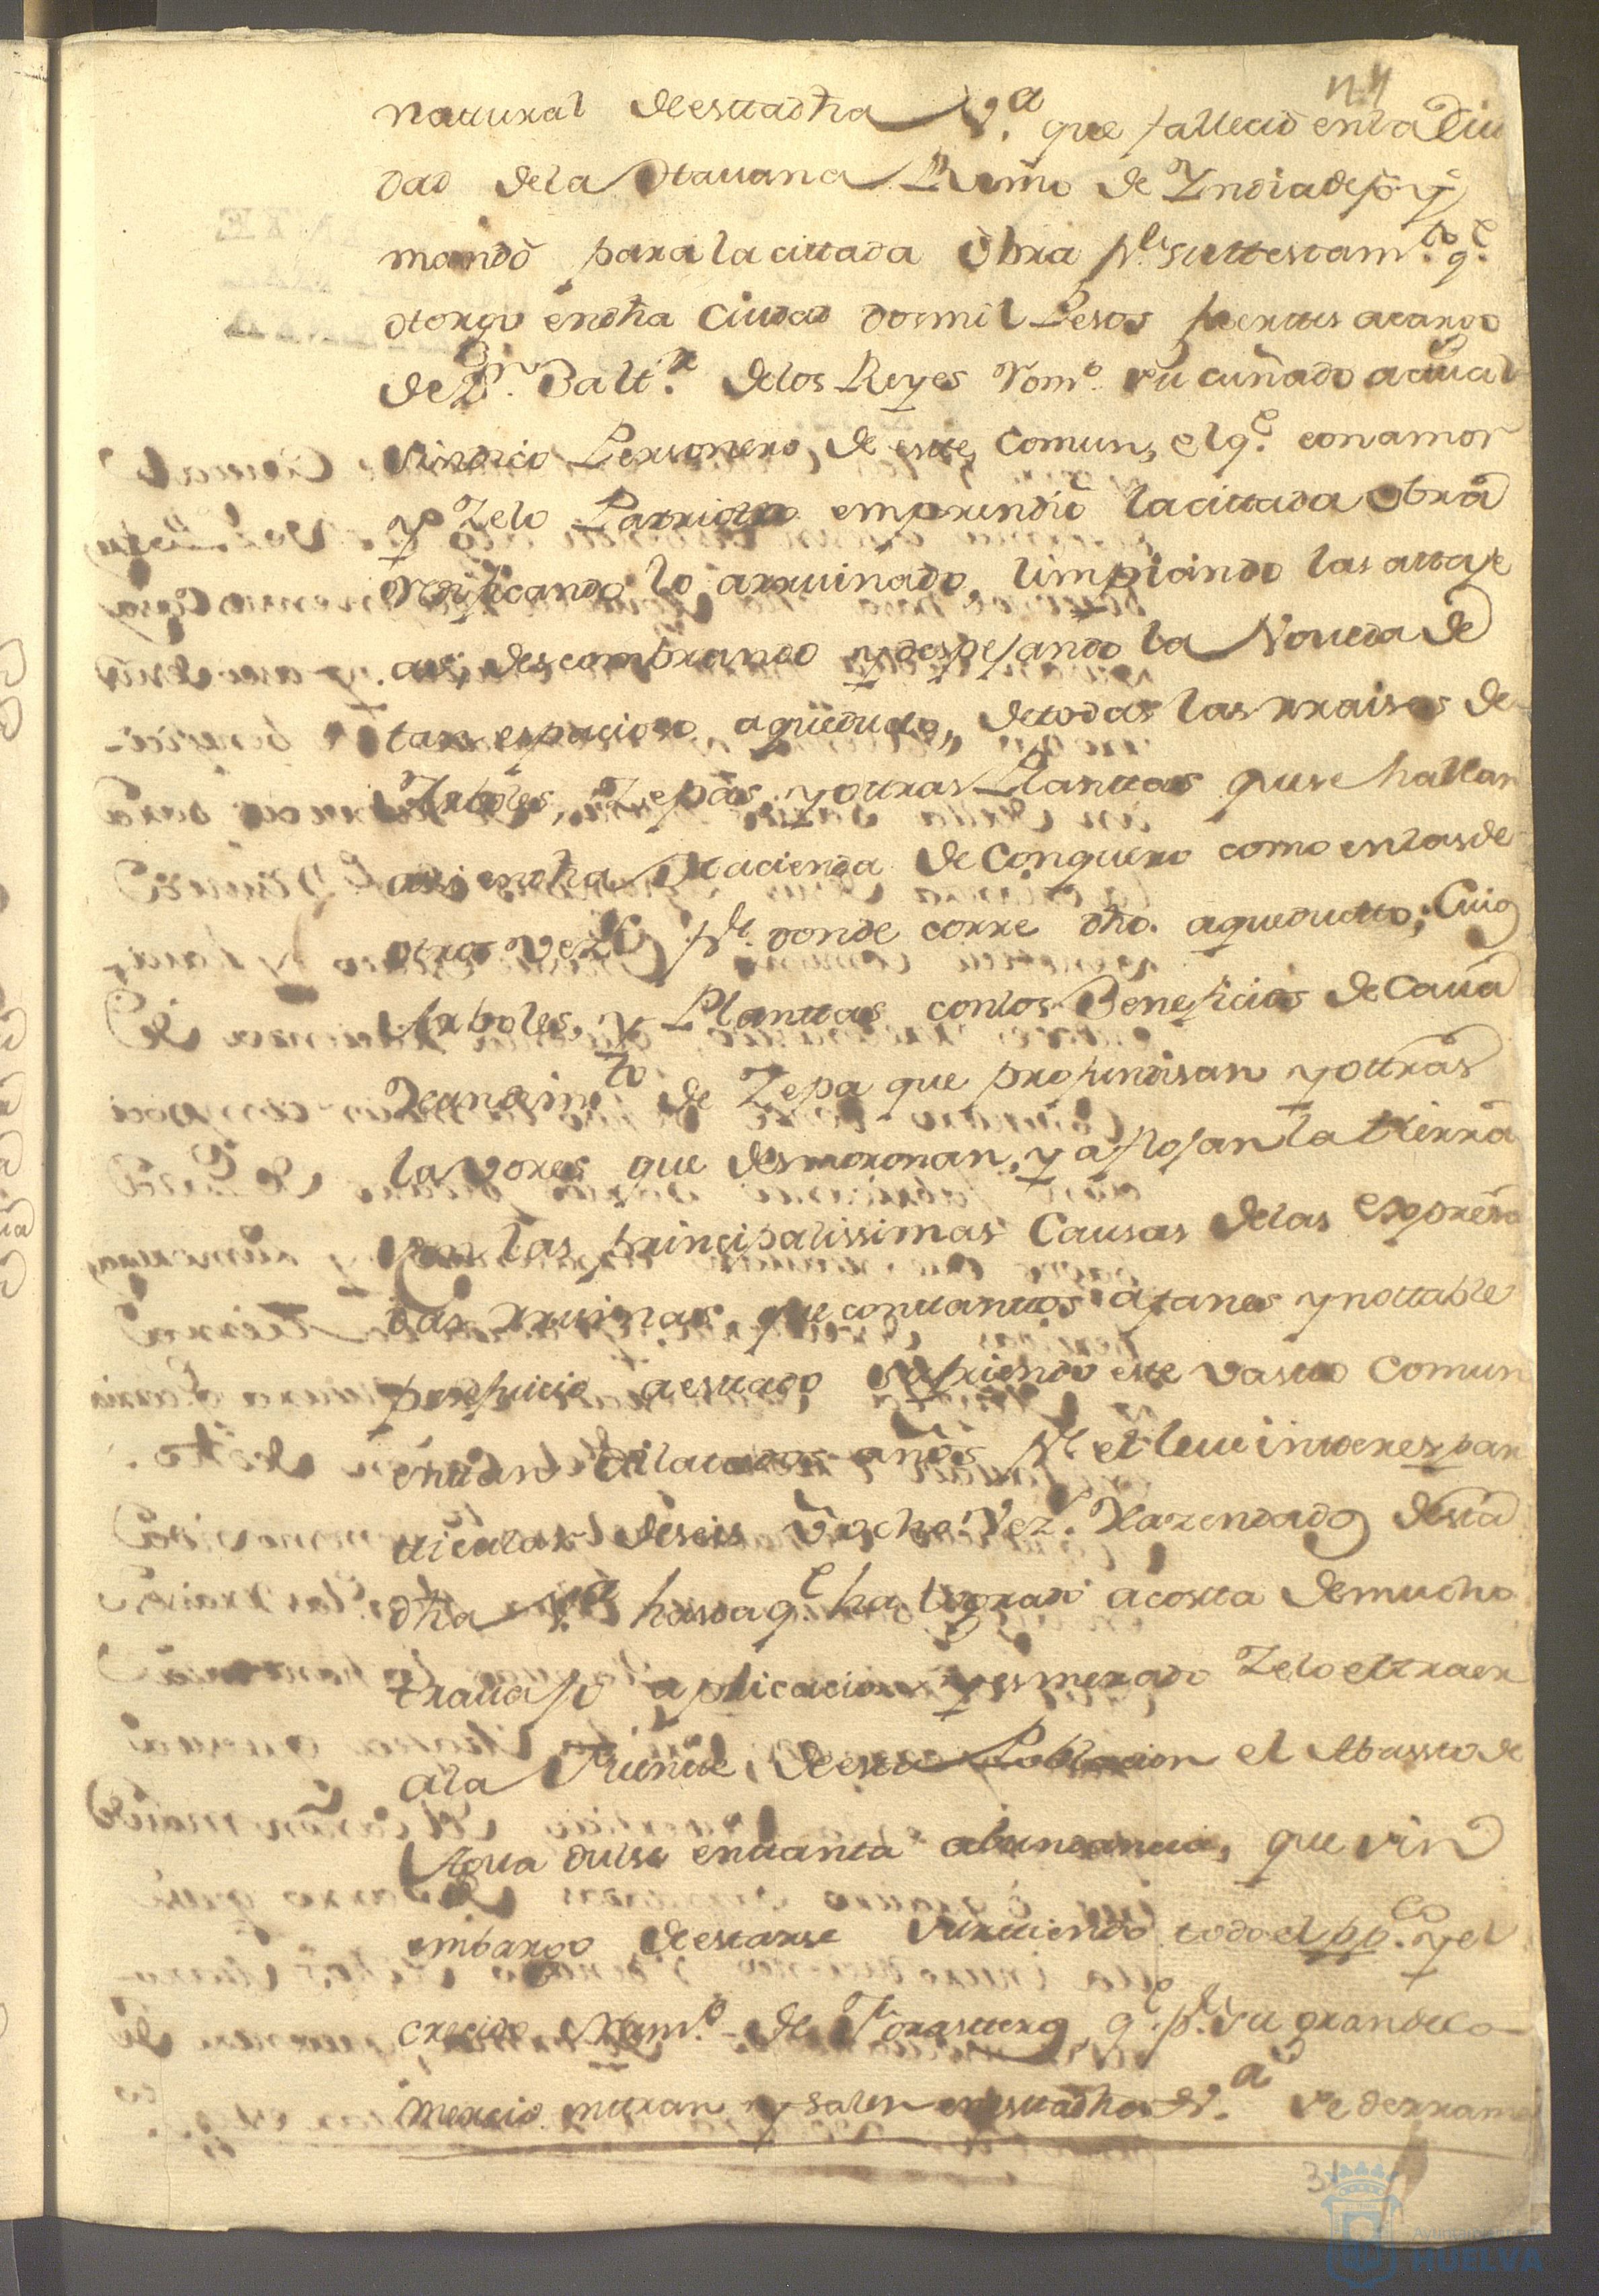 natural de esttadha V.ª que fallecio en la Ciu
dad de la Havana Reino de Yndia dejó y
mandó para la cittada obra p.r su ttestam.to q.e
otorgó en dha Ciudad dos mil Pesos fuerttes a cargo
de D.n Balt.r de los Reyes Rom.o su cuñado actual
Sindico Personero, de este, Comun, el q.e con amor
y Zelo Patriotico emprendió la cittada obra
reificando lo arruinado, limpiando las attaje
as, descombrando y despejando la Voveda de
tan espacioso aqueducto, de todas las rraises de
Arboles, Zepas, y ottras Planttas que se hallan
asi en dha Hacienda de Conquero como en las de
otros Vez.s p.r donde corre dho. aqueductto, Cuios
Arboles, y Planttas con los Beneficios de Cava
de Zepa que profundisan y ottras
lavores que desmoronan, y aflojan la ttierra
son las principalissimas Causas de las expresa
das rruinas, que con tanttos afanes y nottable
perjuicio a esttado sufriendo este vasto Comun
en tan dilatados años p.r el leve interez par
ticular de seis u ocho Vez.s Hazendados de sta
dha V.ª hasta q.e ha logrado a costta de mucho
travajo aplicacion y esmerado Zelo el traer
a la Fuente, de esta Poblacion el Abasto de
Agua dulse en tanta abundancia, que sin
embargo de estarse surttiendo todo el pp.co y el
crecido Num.o de Forasteros q.e p.r su grande Co
mercio entran y salen en estta dha V.ª se derrama
31
Ayuntamiento de
HUELVA